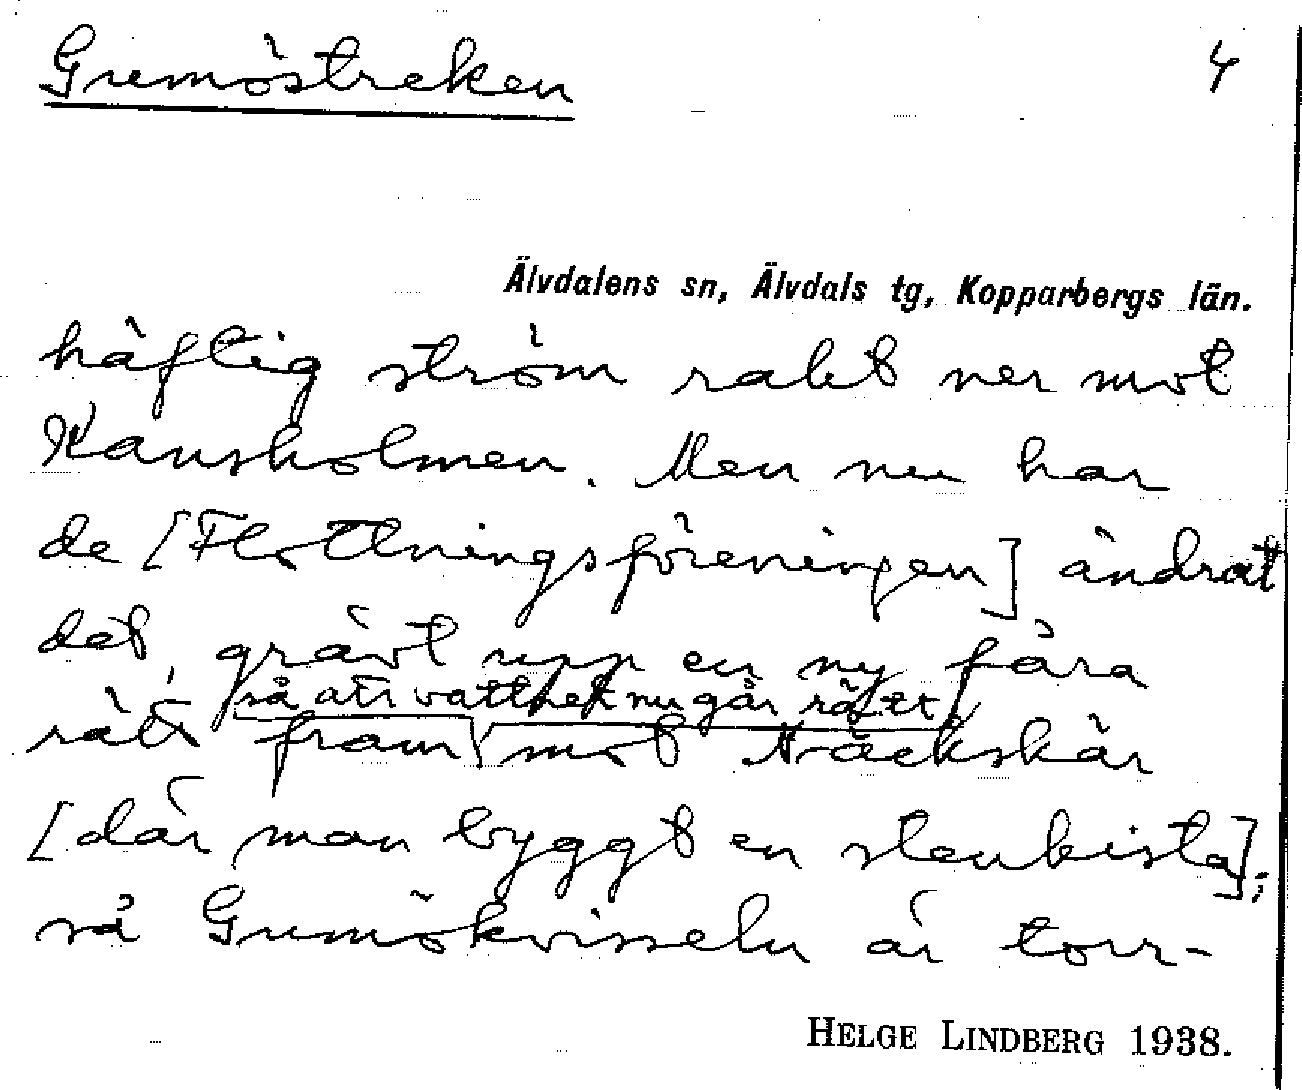 Gumöstreken 4
Älvdalens sn, Älvdals tg, Kopparbergs län.
häftig ström rakt ner mot
Kansholmen. Men nu har
de [Flottningsföreningen] ändrat
det, grävt upp en ny fåra
så att vattnet nu går rätt
rätt fram mot Näckskär
[där man byggt en stenkista];
så Gumökvisseln är torr-
HELGE LINDBERG 1938.